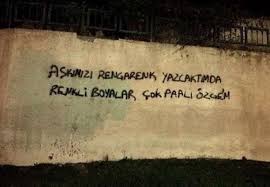 AŞKIMIZI RENGARENK YAZCAKTIMDA
RENKLİ BOYALAR ÇOK PAALI ÖZGEM